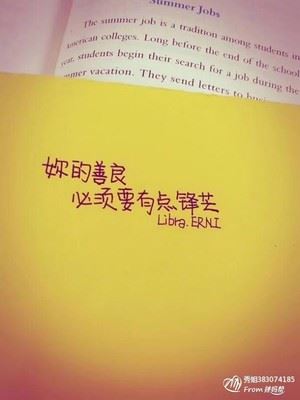 Summer Jobs
The summer job is a tradition among students in
American colleges. Long before the end of the school
year, students begin their search for a job during the
summer vacation. They send letters to
妳的善良
必须要有点锋芒
Libra.ERNI
秀姐383074185
From